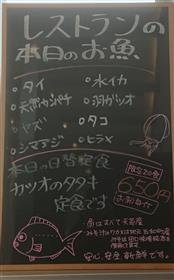 レストランの
本日のお魚
・タイ
・水イカ
・天然カンパチ
・羽ガツオ
・ヤズ
・タコ
・シマアジ
・ヒラメ
本日の日替定食
カツオのタタキ
定食です
限定20食
650円
お刺身付
魚はすべて天草産
安心、安全、新鮮です。